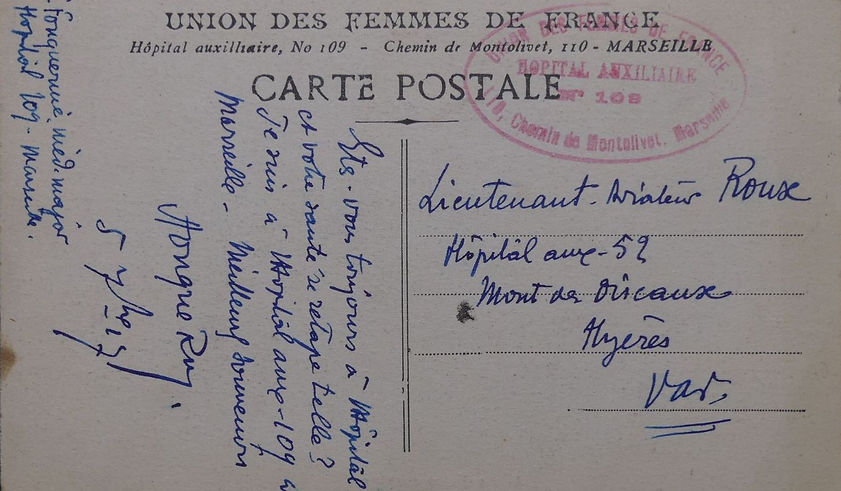 UNION DES FEMMES DE FRANCE
Hôpital auxilliaire, No 109 - Chemin de Montolivet, 110 - MARSEILLE
CARTE POSTALE
UNION DES FEMMES DE FRANCE
HOPITAL AUXILIAIRE
N° 109
110, Chemin de Montolivet. Marseille
Lieutenant-Aviateur Roux
Hôpital aux-52
Mont des Oiseaux
Hyères
Var.
Etes-vous toujours à l'Hôpital
et votre santé se retape t-elle?
Je suis à l'Hôpital aux-109
Marseille - Meilleurs souvenirs
5 7bre
méd. major
Hôpital 109 - Marseille.